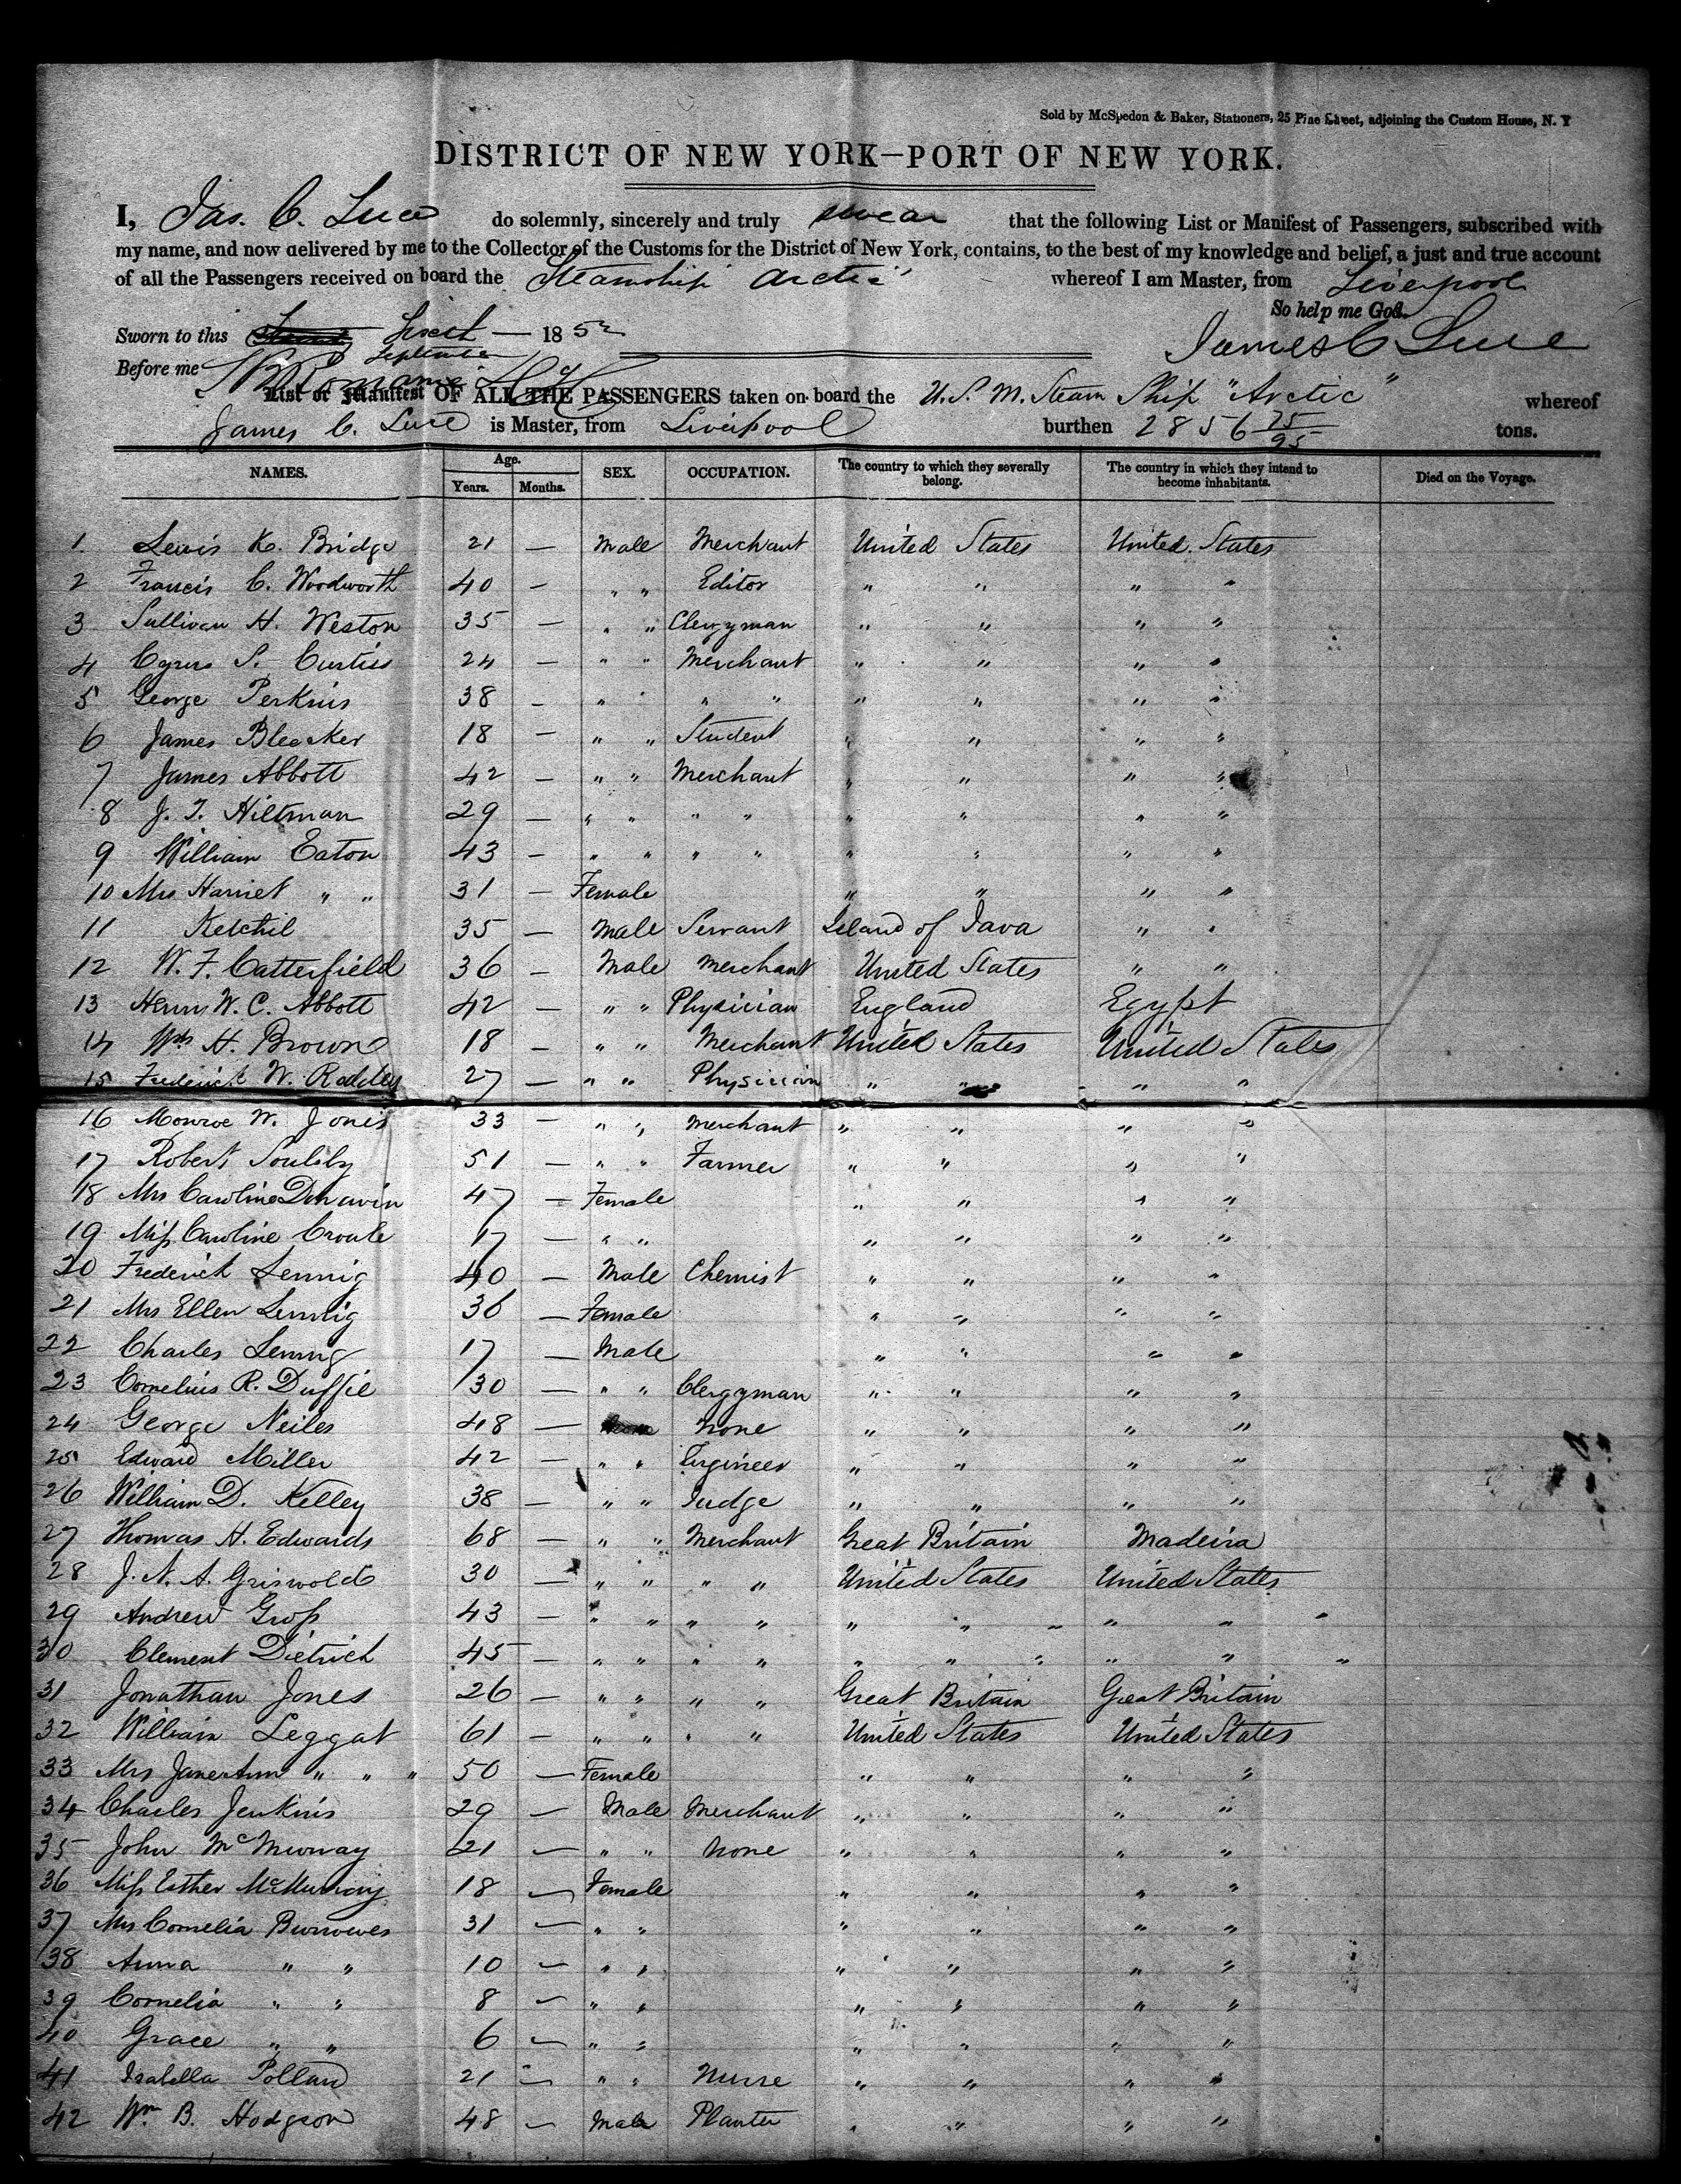 Sold by McSpedon & Baker, Stationers, 25 Pine Street, adjoining the Custom House, N. Y
DISTRICT OF NEW YORK—PORT OF NEW YORK.
I, Jas. C. Luce do solemnly, sincerely and truly swear that the following List or Manifest of Passengers, subscribed with
my name, and now delivered by me to the Collector of the Customs for the District of New York, contains, to the best of my knowledge and belief, a just and true account
of all the Passengers received on board the Steamship Arctic whereof I am Master, from Liverpool
So help me God.
Sworn to this first — 1852 James C Luce
September
Before me
List or Manifest OF ALL THE PASSENGERS taken on board the U.S. M. Steam Ship "Arctic" whereof
James C. Luce is Master, from Liverpool burthen 2856 75/95 tons.
NAMES. Age. Years. Months. SEX. OCCUPATION. The country to which they severally belong. The country in which they intend to become inhabitants. Died on the Voyage.
1. Lewis K. Bridge 21 — Male Merchant United States United States
2 Francis C. Woodworth 40 — " " Editor " " " "
3 Sullivan H. Weston 35 — " " Clergyman " " " "
4 Cyrus S. Curtiss 24 — " " Merchant " " " "
5 George Perkins 38 — " " " " " " " "
6 James Bleecker 18 — " " Student " " " "
7 James Abbott 42 — " " Merchant " " " "
8 J. T. Hiltman 29 — " " " " " " " "
9 William Eaton 43 — " " " " " " " "
10 Mrs Harriet " " 31 — Female " " " "
11 Ketchil 35 — Male Servant Island of Java " "
12 W. F. Catterfield 36 — Male Merchant United States " "
13 Henry W. C. Abbott 42 — " " Physician England Egypt
14 Wm H. Brown 18 — " " Merchant United States United States
15 Frederick W. Radcley 27 — " " Physician " " " "
16 Monroe W. Jones 33 — " " Merchant " " " "
17 Robert Soulsby 51 — " " Farmer " " " "
18 Mrs Caroline Donavin 47 — Female " " " "
19 Miss Caroline Croule 17 — " " " " " "
20 Frederick Lennig 40 — Male Chemist " " " "
21 Mrs Ellen Lennig 36 — Female " " " "
22 Charles Lennig 17 — Male " " " "
23 Cornelius R. Duffie 30 — " " Clergyman " " " "
24 George Neiles 48 — None " " " "
25 Edward Miller 42 — " " Engineer " " " "
26 William D. Kelley 38 — " " Judge " " " "
27 Thomas H. Edwards 68 — " " Merchant Great Britain Madeira
28 J. N. A. Griswold 30 — " " " " United States United States
29 Andrew Gross 43 — " " " " " " " " " "
30 Clement Dietrich 45 — " " " " " " " " " "
31 Jonathan Jones 26 — " " " " Great Britain Great Britain
32 William Leggat 61 — " " " " United States United States
33 Mrs Jane Ann " " " 50 — Female " " " "
34 Charles Jenkins 29 — Male Merchant " " " "
35 John McMurray 21 — " " None " " " "
36 Miss Esther McMurray 18 — Female " " " "
37 Mrs Cornelia Burrowes 31 — " " " " " "
38 Anna " " 10 — " " " " " "
39 Cornelia " " 8 — " " " " " "
40 Grace " " 6 — " " " " " "
41 Isabella Pollard 21 — " " Nurse " " " "
42 Wm B. Hodgson 48 — Male Planter " " " "